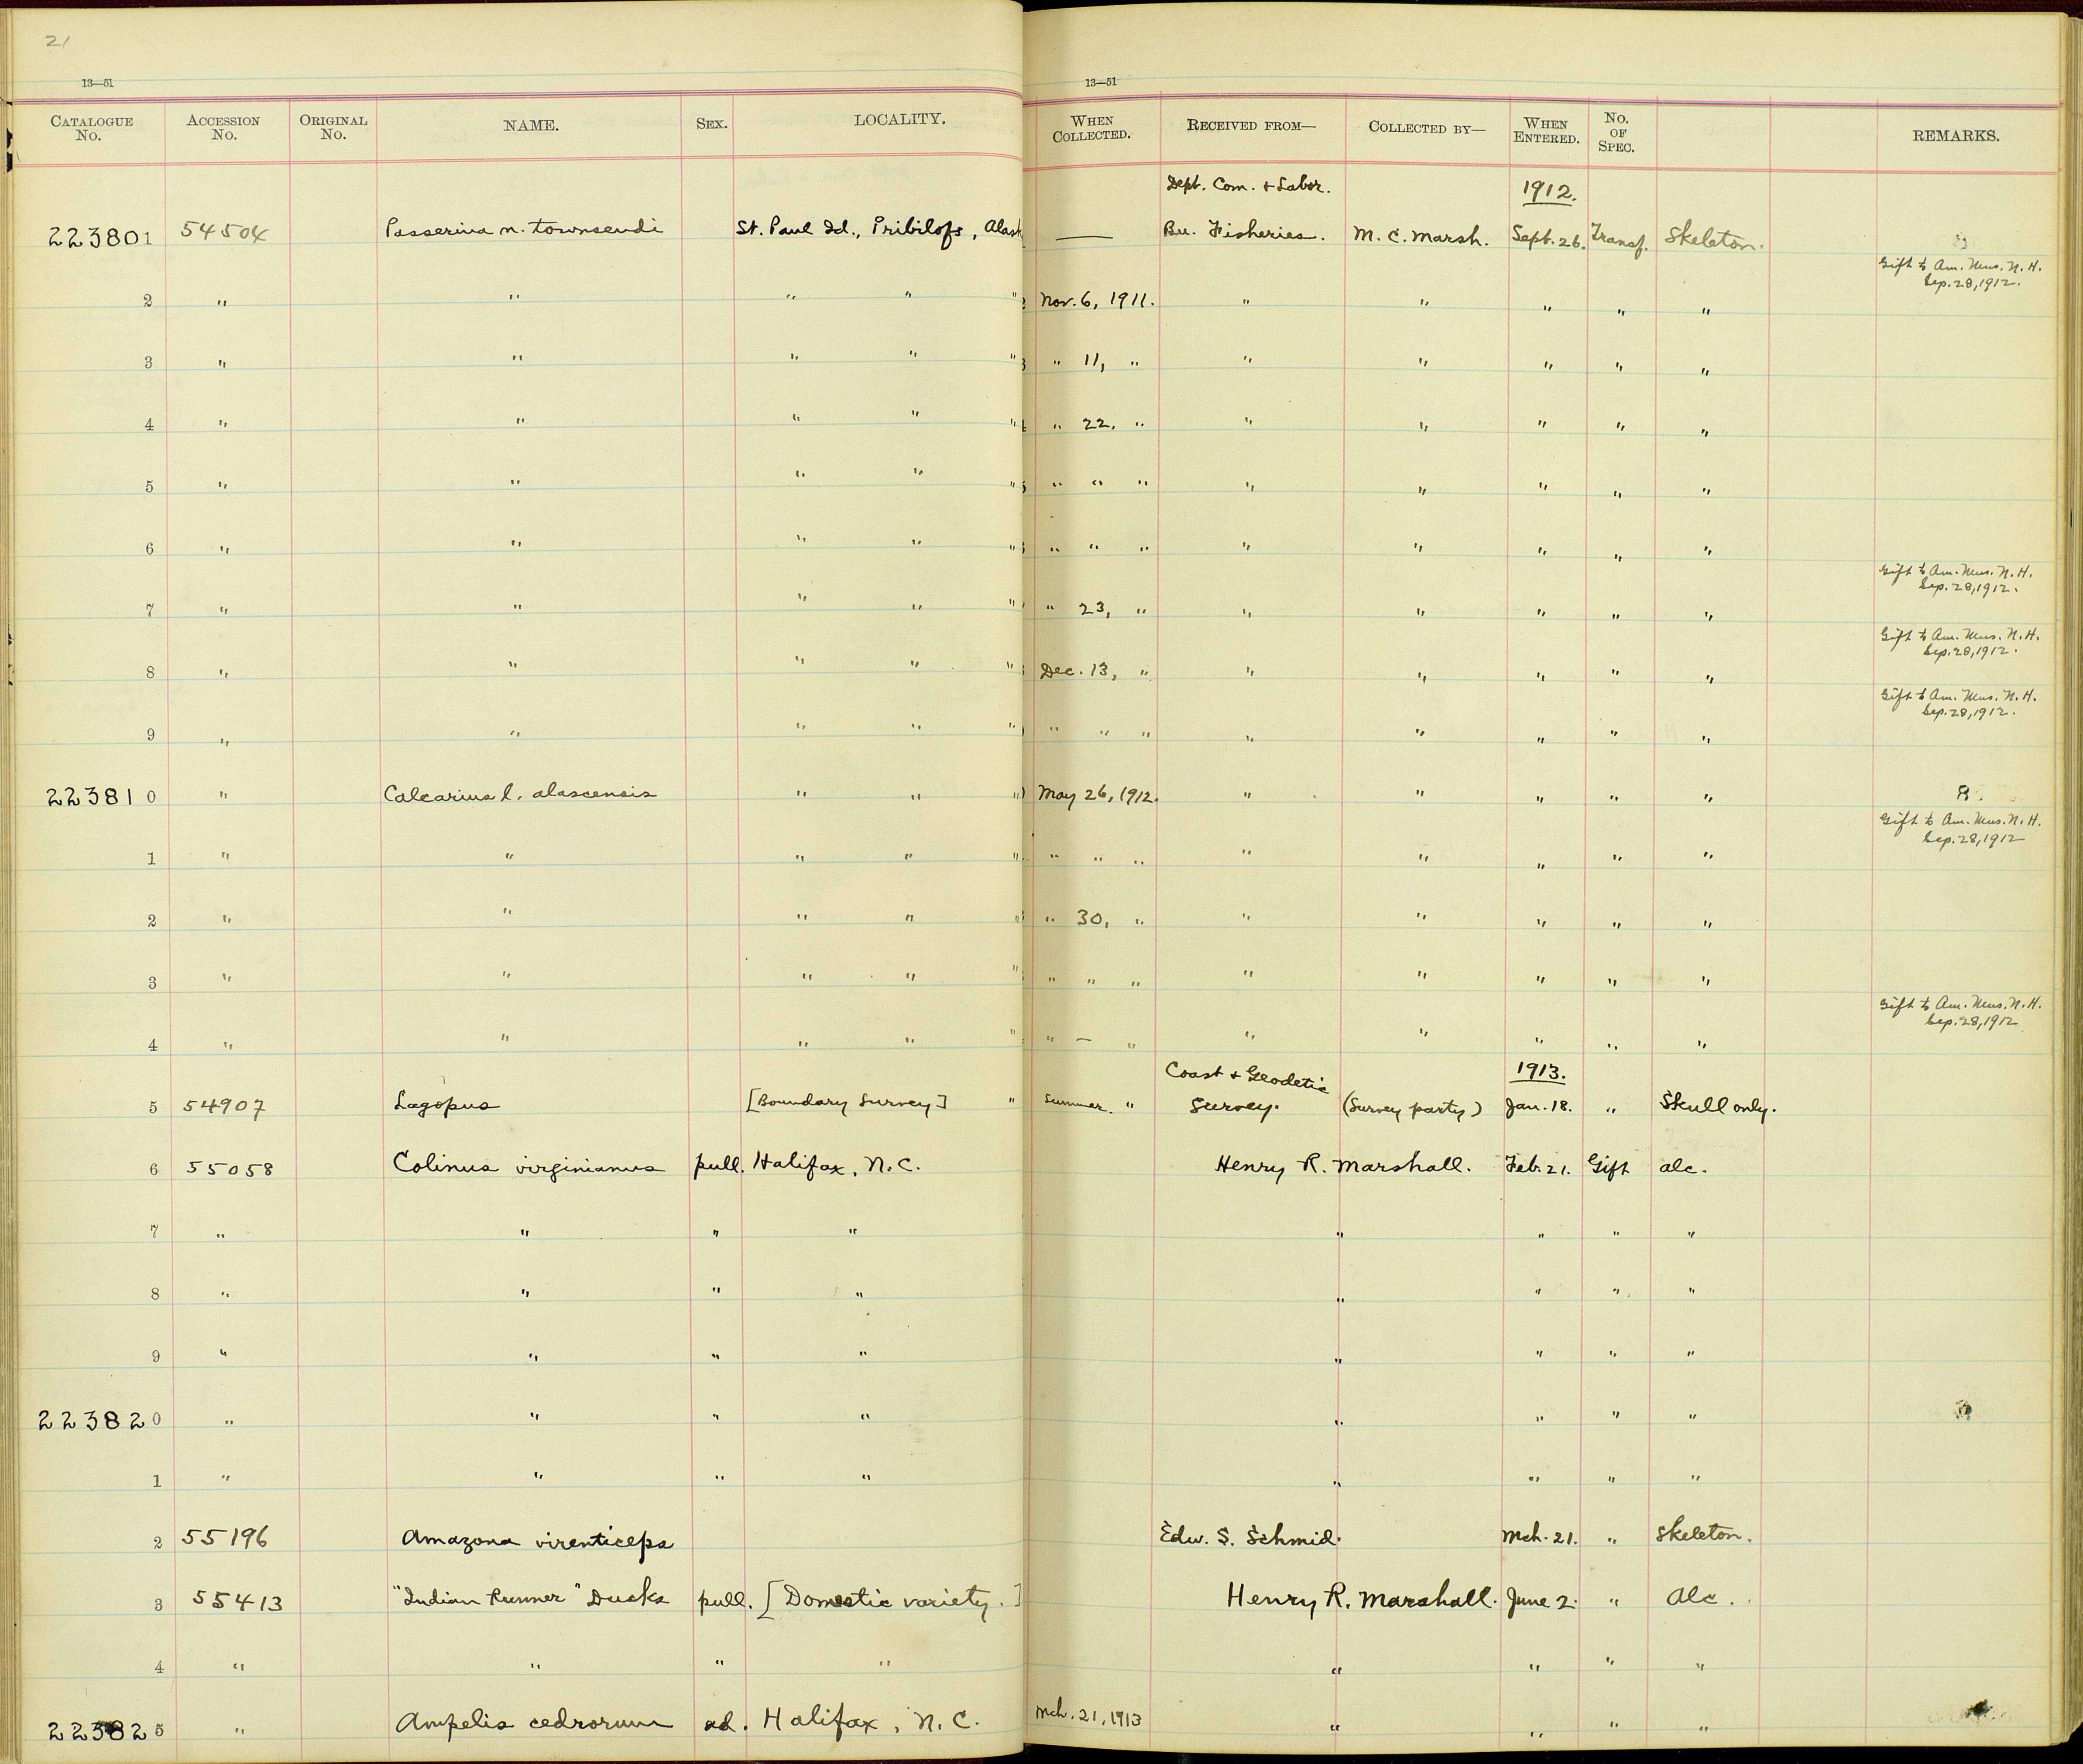 21
13—51
13—51
CATALOGUE No. ACCESSION No. ORIGINAL No. NAME. SEX. LOCALITY. WHEN COLLECTED. RECEIVED FROM— COLLECTED BY— WHEN ENTERED. NO. OF SPEC. REMARKS.
Dept. Com. & Labor. 1912.
223801 54504 Passerina n. townsendi St. Paul Id., Pribilofs, Alask — Bu. Fisheries. M. C. Marsh. Sept. 26. Transf. Skeleton.
Gift to Am. Mus. N. H.
Sep. 28, 1912.
2 " " " " " Nov. 6, 1911. " " " " "
3 " " " " " " 11, " " " " " "
4 " " " " " " 22, " " " " " "
5 " " " " " " " " " " " " "
6 " " " " " " " " " " " " "
Gift to Am. Mus. N. H.
Sep. 28, 1912.
7 " " " " " " 23, " " " " " "
Gift to Am. Mus. N. H.
Sep. 28, 1912.
8 " " " " " Dec. 13, " " " " " "
Gift to Am. Mus. N. H.
Sep. 28, 1912.
9 " " " " " " " " " " " " "
223810 " Calcarius l. alascensis " " " May 26, 1912. " " " " "
Gift to Am. Mus. N. H.
Sep. 28, 1912
1 " " " " " " " " " " " " "
2 " " " " " " 30, " " " " " "
3 " " " " " " " " " " " " "
Gift to Am. Mus. N. H.
Sep. 28, 1912
4 " " " " " " — " " " " " "
Coast & Geodetic 1913.
5 54907 Lagopus [Boundary Survey] " Summer. " Survey. (Survey party) Jan. 18. " Skull only.
6 55058 Colinus virginianus pull. Halifax, N. C. Henry R. Marshall. Feb. 21. Gift alc.
7 " " " " " " " "
8 " " " " " " " "
9 " " " " " " " "
223820 " " " " " " " "
1 " " " " " " " "
2 55196 Amazona virenticeps Edw. S. Schmid. Mch. 21. " Skeleton.
3 55413 "Indian Runner" Ducks pull. [Domestic variety.] Henry R. Marshall. June 2. " Alc.
4 " " " " " " " "
223825 " Ampelis cedrorum ad. Halifax, N. C. Mch. 21, 1913 " " " "